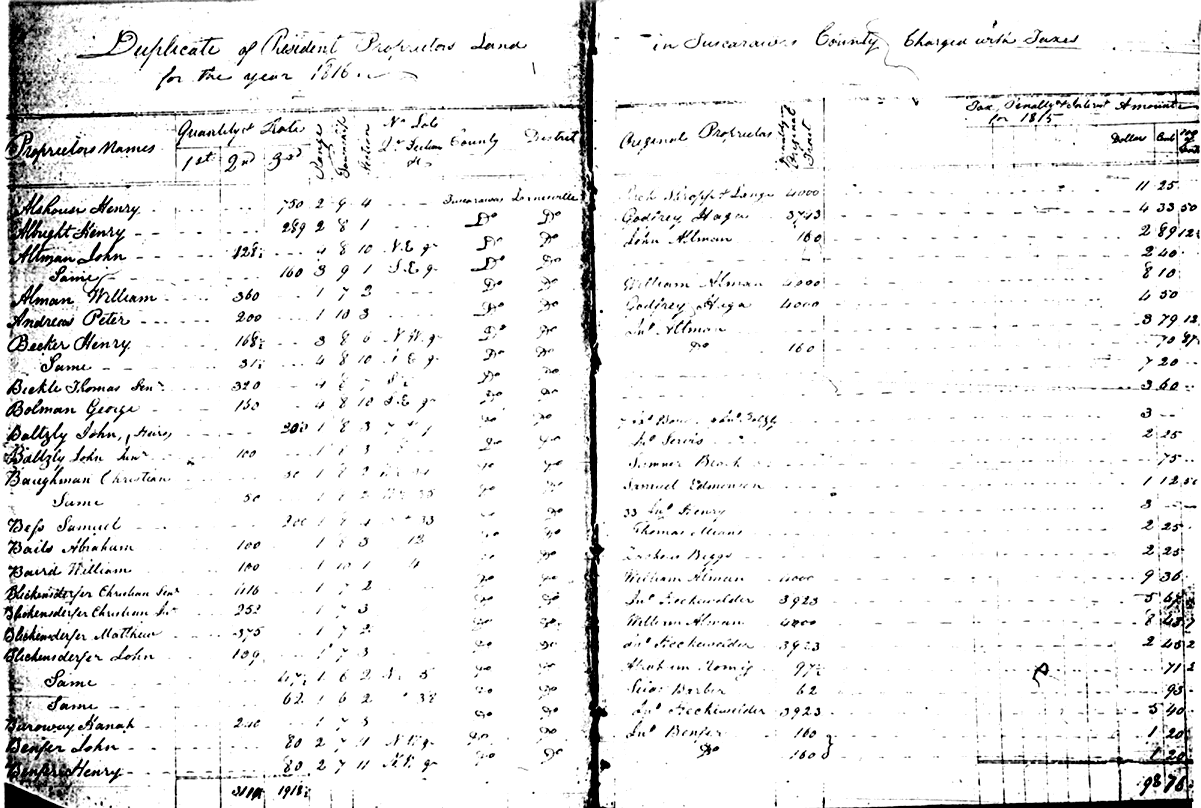 Duplicate of Resident Proprietors Land in Tuscarawas County Charged with Taxes
for the year 1816
Proprietors Names Quantity & Rate 1st 2nd 3rd Range Township Section No Lots Qr Section &c County District Original Proprietors Quantity Original Tract Tax, Penalty & Interest Amount for 1815 Dollar Cents
Alshouse Henry 750 2 9 4 Tuscarawas 4000 11 25
Albright Henry 289 2 8 1 Do Do Godfrey Haga 3743 4 33 50
Altman John 128 4 8 10 N.E qr Do Do John Altman 160 2 89 12
Same 160 3 9 1 S.E qr Do Do 2 40
Alman William 360 1 7 2 Do Do William Alman 4000 8 10
Andreas Peter 200 1 10 3 Do Do Godfrey Haga 4000 4 50
Becker Henry 168 3 8 6 N.W qr Do Do Jno Altman 3 79 12
Same 31 4 8 10 S E qr Do Do Do 160 70 87
Beckle Thomas Senr 320 4 8 7 Do Do 7 20
Bolman George 150 4 8 10 S.E qr Do Do 3 60
Baltzly John, Heirs 200 1 8 3 Do Do 3
Baltzly John Junr 100 1 8 3 Do Do Jno Servis 2 25
Baughman Christian 50 1 8 2 Do Do Sumner Black 75
Same 50 1 8 2 Do Do Samuel Edmonson 1 12 50
Bess Samuel 200 1 8 4 33 Do Do 33 Jno Henry 3
Bails Abraham 100 1 8 3 12 Do Do Thomas Means 2 25
Baird William 100 1 10 1 4 Do Do Zachen Biggs 2 25
Blickensderfer Christian Senr 416 1 7 2 Do Do William Alman 4000 9 36
Blickensderfer Christian Jnr 252 1 7 3 Do Do Jno Heckewelder 3923 5 67
Blickensderfer Matthew 375 1 7 2 Do Do William Alman 4000 8 43
Blickensderfer John 109 1 7 3 Do Do Jno Heckewelder 3923 2 45
Same 47 1 6 2 No 5 Do Do Abraham Romig 97 71
Same 62 1 6 2 " 38 Do Do Barber 62 93
Baroway Hanah 240 1 7 3 Do Do Jno Heckewelder 3923 5 40
Benfer John 80 2 7 4 Do Do Jno Benfer 160 1 20
Benfer Henry 80 2 7 4 Do Do Do 160 1 20
1918 98 76